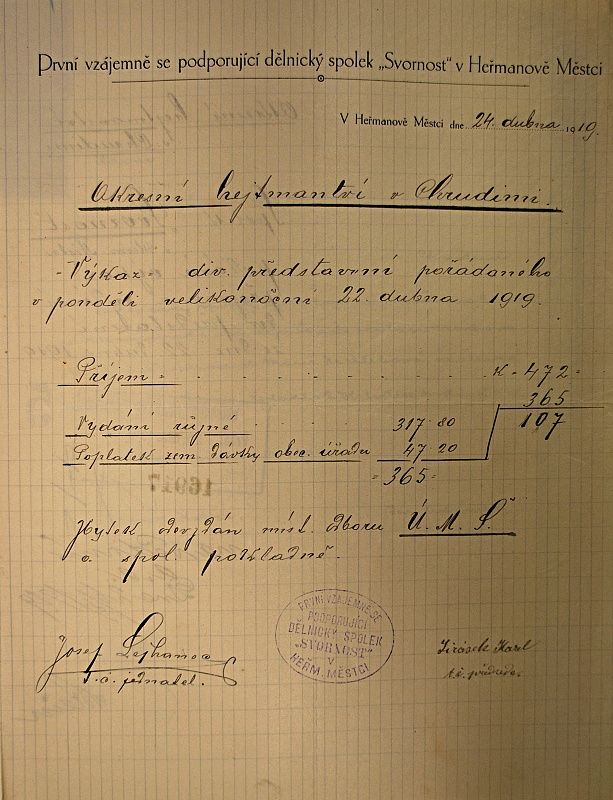 První vzájemně se podporující dělnický spolek „Svornost" v Heřmanově Městci
V Heřmanově Městci dne 24. dubna 1919.
Okresní hejtmanství v Chrudimi.
Výkaz div. představení pořádaného
v pondělí velikonoční 22. dubna 1919.
Příjem K 472
365
Vydání různé 317 80 107
Poplatek zem. dávky obec. úřadu 47 20
365
Zbytek odevzdán míst. odboru Ú. M. Š.
a spol. pokladně.
PRVNÍ VZÁJEMNĚ SE
PODPORUJÍCÍ
DĚLNICKÝ SPOLEK
„SVORNOST"
V
HEŘM. MĚSTCI
Josef
t. č. jednatel.
Jirásek Karel
t. č. předseda.
16917